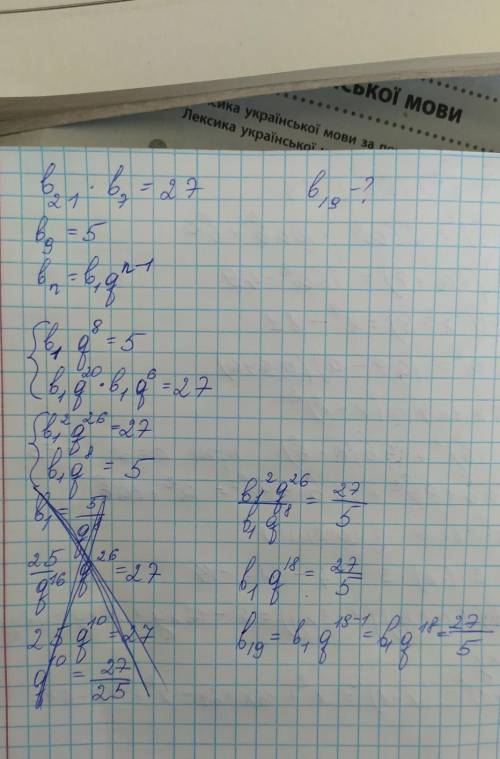 СЬКОЇ МОВИ
Лексика української мови за по
Лексика української
b₂₁ · b₇ = 27
b₁₉ - ?
b₉ = 5
bₙ = b₁qⁿ⁻¹
b₁ q⁸ = 5
b₁q²⁰ · b₁q⁶ = 27
b₁²q²⁶ = 27
b₁q⁸ = 5
b₁ = 5/q⁸
25/q¹⁶ q²⁶ = 27
25 q¹⁰ = 27
q¹⁰ = 27/25
b₁²q²⁶/b₁q⁸ = 27/5
b₁ q¹⁸ = 27/5
b₁₉ = b₁q¹⁹⁻¹ = b₁q¹⁸ = 27/5